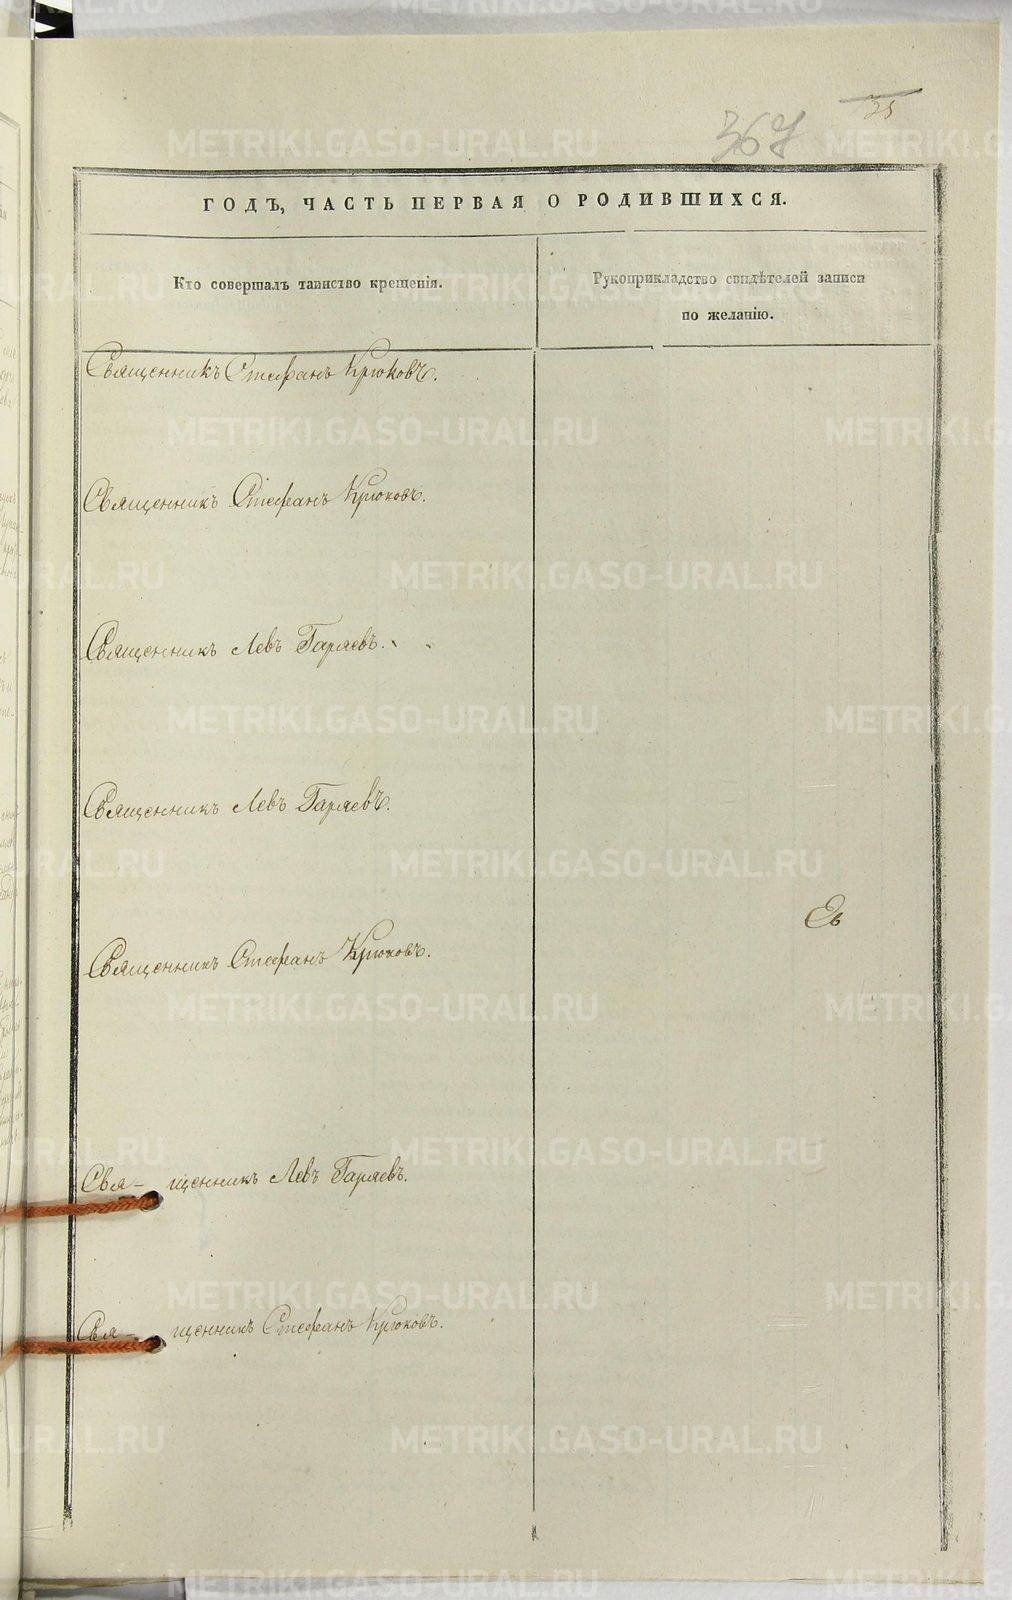 35
367
ГОДЪ, ЧАСТЬ ПЕРВАЯ О РОДИВШИХСЯ.
Кто совершалъ таинство крещенія.
Рукоприкладство свидѣтелей записи
по желанію.
Священникъ Стефанъ Крюковъ.
Священникъ Стефанъ Крюковъ.
Священникъ Левъ Гаряевъ.
Священникъ Левъ Гаряевъ.
Священникъ Стефанъ Крюковъ.
Свя- щенникъ Левъ Гаряевъ.
Свя- щенникъ Стефанъ Крюковъ.
METRIKI.GASO-URAL.RU